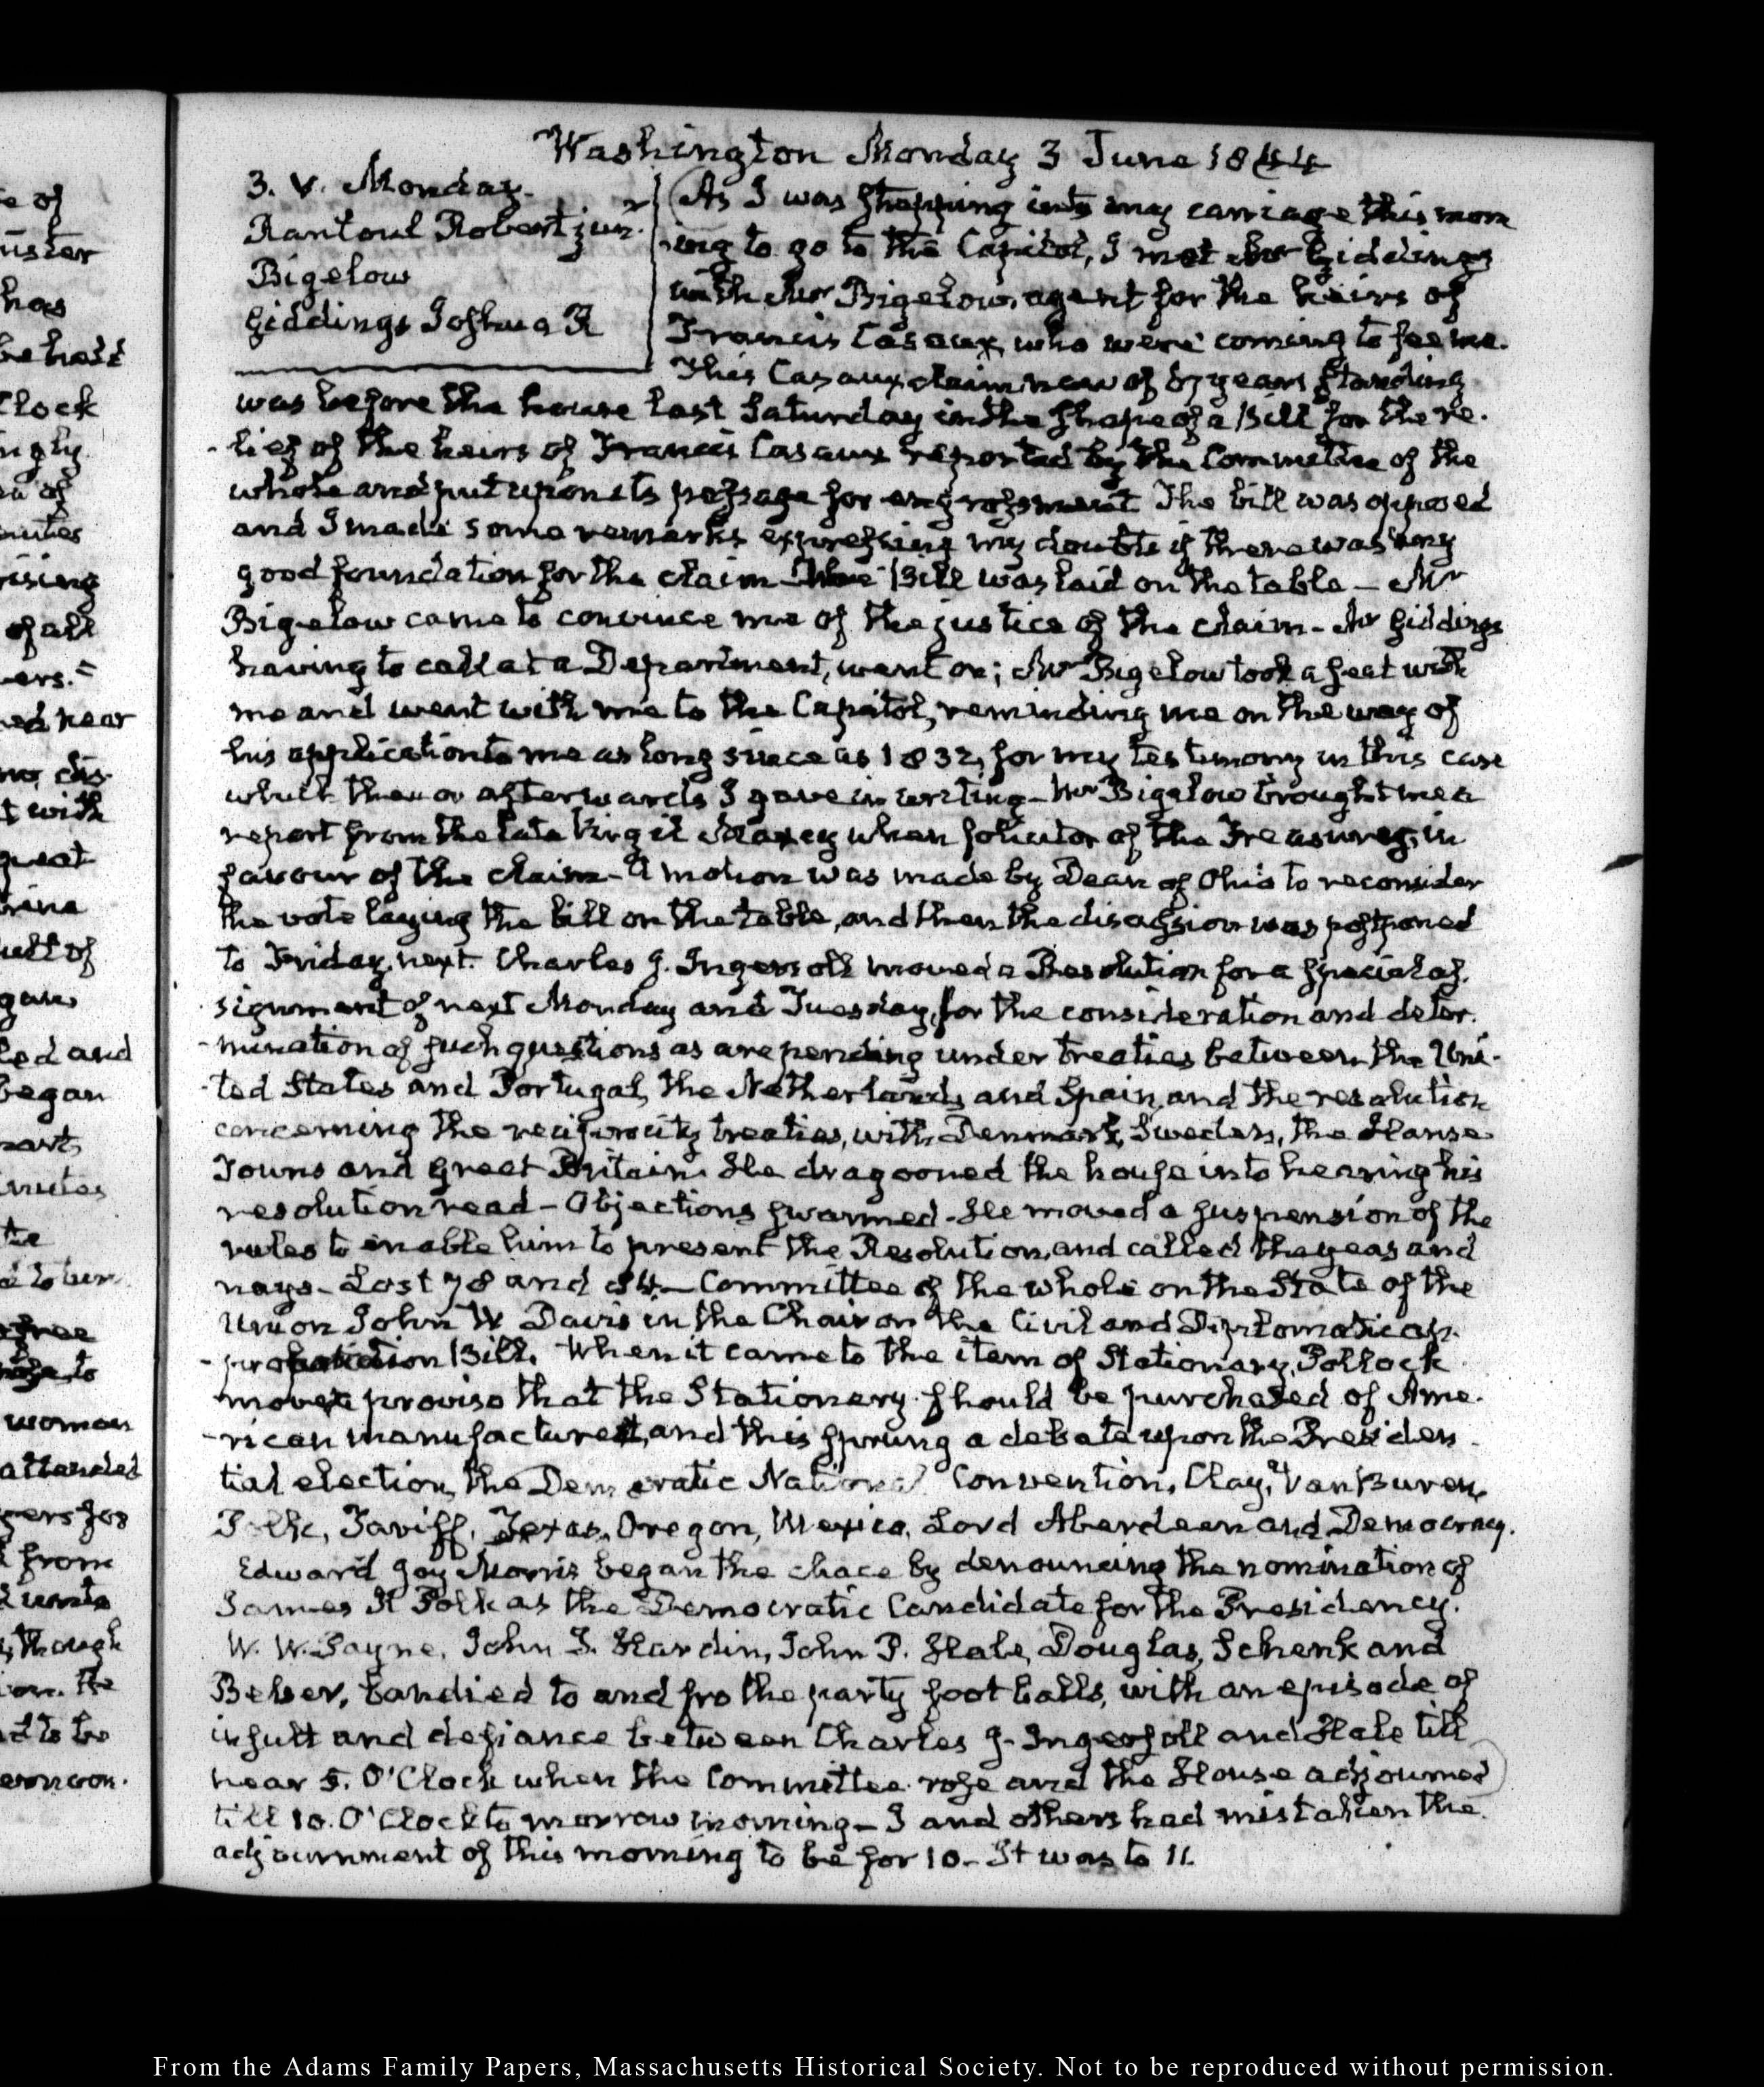 e of
uster
has
be held
Clock
ngly
of
nutes
rising
of all
ers.=
ed near
dis-
t with
great
rine
of
gan
ed and
began
part,
nutes
the
free
to
woman
attended
from
though
the
d to be
ernoon.
Washington Monday 3 June 1844
3. V. Monday.
Rantoul Robert junr.
Bigelow
Giddings Joshua R
As I was stepping into my carriage this morn
ing to go to the Capitol, I met Mr Giddings
with Mr Bigelow, agent for the heirs of
Francis Cazeaux, who were coming to see me.
This Cazeaux claim now of years standing
was before the house last Saturday in the shape of a Bill for the re-
-lief of the heirs of Francis Cazeaux reported by the Committee of the
whole and put upon its passage for engrossment The bill was opposed
and I made some remarks expressing my doubts if there was any
good foundation for the claim Bill was laid on the table – Mr
Bigelow came to convince me of the justice of the claim – Mr Giddings
having to call at a Department, went on; Mr Bigelow took a seat with
me and went with me to the Capitol, reminding me on the way of
his application to me as long since as 1832, for my testimony in this case
which then or afterwards I gave in writing – Mr Bigelow brought me a
report from the late Virgil Maxcy when Solicitor of the Treasury, in
favour of the claim – A motion was made by Dean of Ohio to reconsider
the vote laying the bill on the table, and then the discussion was postponed
to Friday next. Charles J. Ingersoll moved a Resolution for a special as-
signment of next Monday and Tuesday, for the consideration and deter-
-mination of such questions as are pending under treaties between the Uni-
-ted States and Portugal, the Netherlands and Spain, and the resolution
concerning the reciprocity treaties, with Denmark, Sweden, the Hanse
Towns and Great Britain. He dragooned the house into hearing his
resolution read – Objections swarmed – He moved a suspension of the
rules to enable him to present the Resolution, and called the yeas and
nays – Lost 78 and 84. – Committee of the whole on the State of the
Union John W Davis in the Chair on the Civil and Diplomatic ap-
-propriation Bill. When it came to the item of Stationary, Pollock
moved a proviso that the Stationery should be purchased of Ame-
-rican manufacture, and this sprung a debate upon the Presiden-
tial election, the Democratic National Convention, Clay, Van Buren,
Polk, Tariff, Texas, Oregon, Mexico, Lord Aberdeen and Democracy.
Edward Joy Morris began the chace by denouncing the nomination of
James K Polk as the Democratic Candidate for the Presidency.
W. W. Payne, John J. Hardin, John P. Hale, Douglas, Schenk and
Belser, bandied to and fro the party foot balls, with an episode of
insult and defiance between Charles J. Ingersoll and Hale till
near 5. O'Clock when the Committee rose and the House adjourned
till 10. O'Clock to morrow morning – I and others had mistaken the
adjournment of this morning to be for 10 – It was to 11.
From the Adams Family Papers, Massachusetts Historical Society. Not to be reproduced without permission.